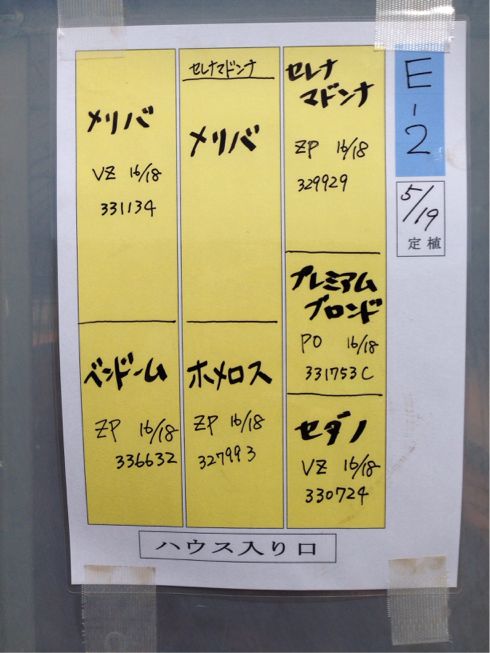 E-2
5/19
定植
セレナ
マドンナ
ZP 16/18
329929
プレミアム
ブロンド
PO 16/18
331753C
セダノ
VZ 16/18
330724
セレナマドンナ
メリバ
ホメロス
ZP 16/18
327993
メリバ
VZ 16/18
331134
ベンドーム
ZP 16/18
336632
ハウス入り口